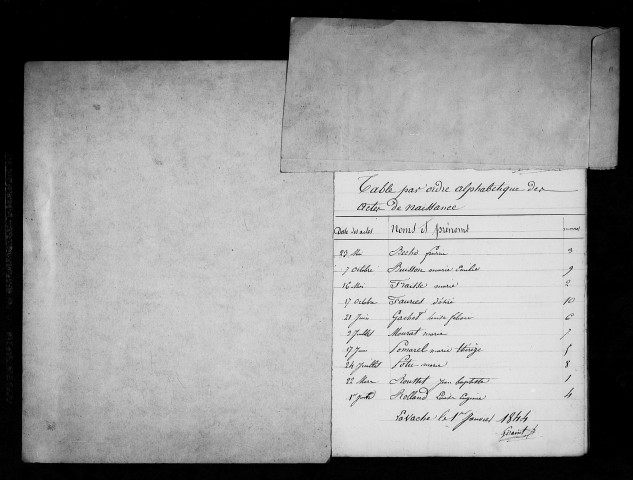 Table par ordre alphabétique des
actes de naissance
Date des actes Noms et prénoms
23 Mai 3
7 Octobre Buisson marie 9
16 Mai Fraisse marie 2
17 Octobre Faures Désiré 10
21 Juin 6
2 Juillet Mourat marie 7
17 Juin Pomarel marie thérèze 5
24 Juillet marie 8
22 Mars Rousset Jean baptiste 1
1er Rolland Eugénie 4
Lavache le 1er Janvier 1844